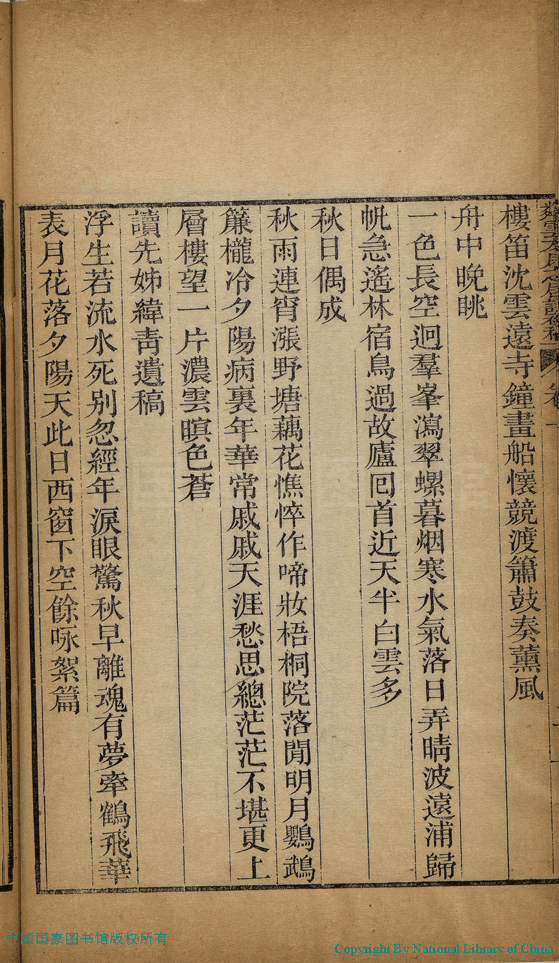 樓笛沈雲遠寺鐘畫船懷競渡簫鼓奏薰風
舟中晚眺
一色長空迥羣峯瀉翠螺暮烟寒水氣落日弄晴波遠浦歸
帆急遙林宿鳥過故廬囘首近天半白雲多
秋日偶成
秋雨連宵漲野塘藕花憔悴作啼妝梧桐院落閒明月鸚鵡
簾櫳冷夕陽病裏年華常戚戚天涯愁思總茫茫不堪更上
層樓望一片濃雲暝色蒼
讀先姊緯靑遺稿
浮生若流水死别忽經年淚眼驚秋早離魂有夢牽鶴飛華
表月花落夕陽天此日西窗下空餘咏絮篇
中国国家图书馆版权所有
Copyright By National Library of China